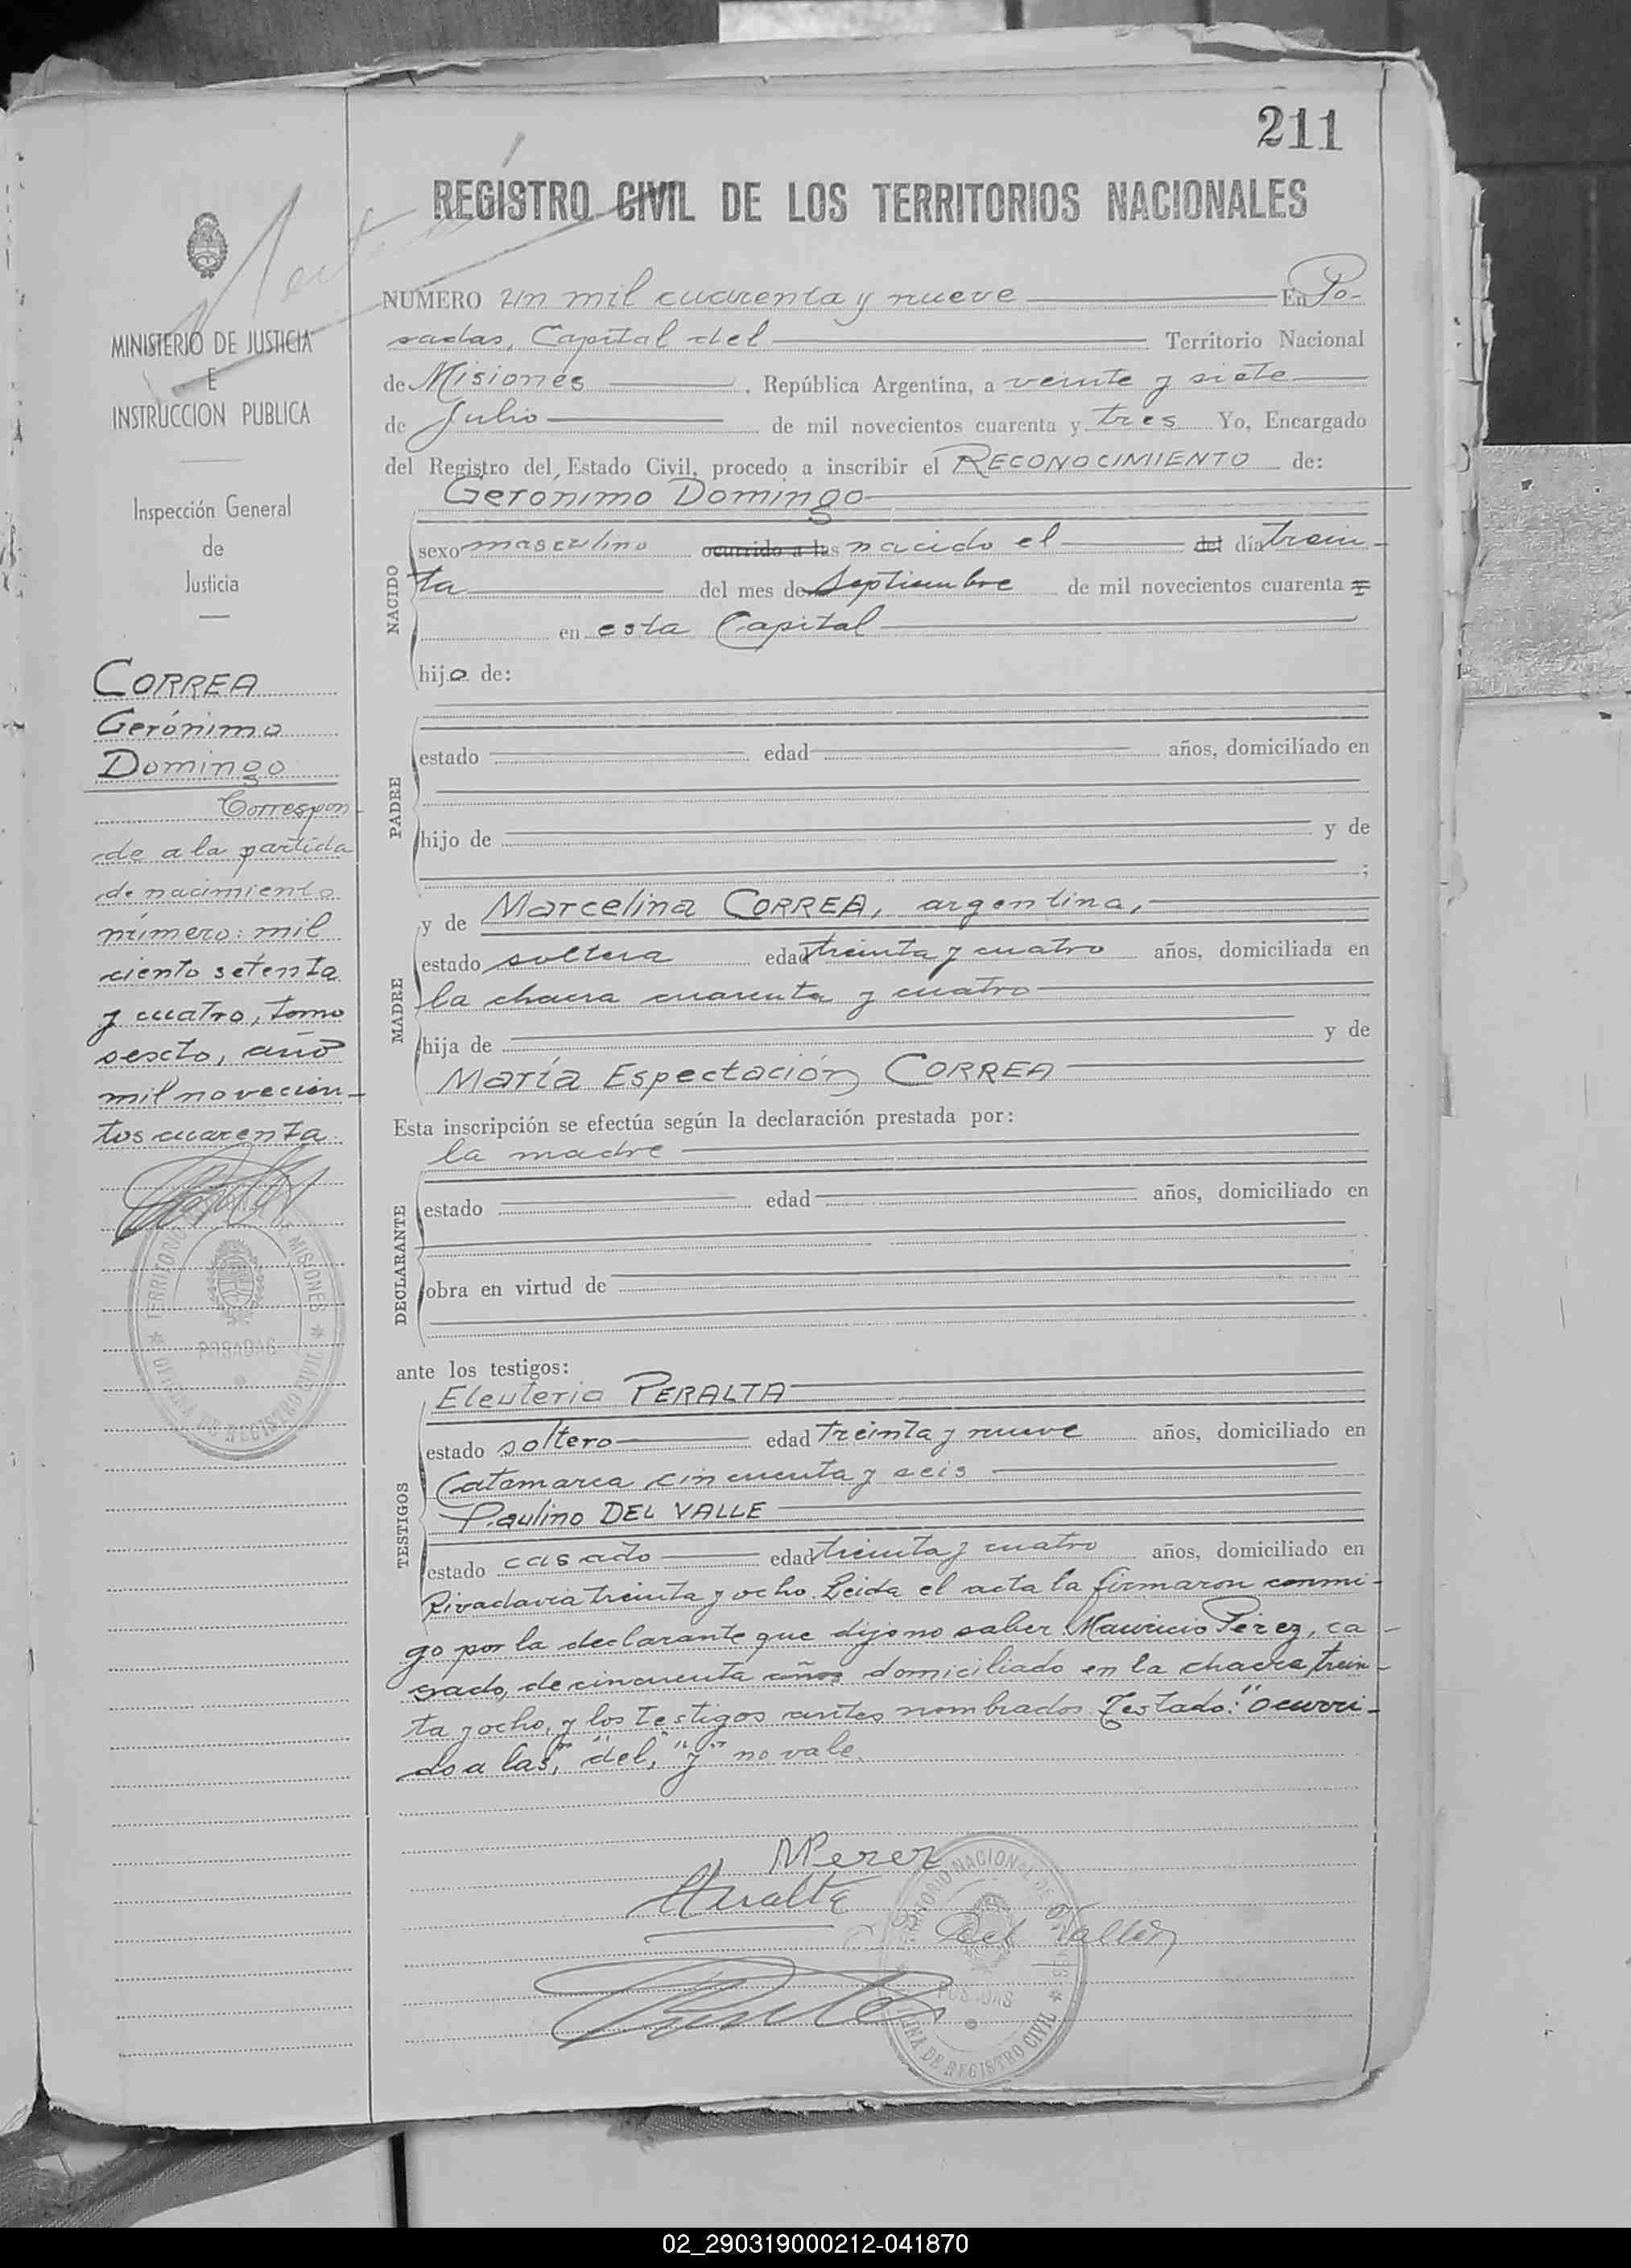 211
REGISTRO CIVIL DE LOS TERRITORIOS NACIONALES
MINISTERIO DE JUSTICIA
E
INSTRUCCION PUBLICA
Inspección General
de
Justicia
CORREA
Gerónimo
Domingo
Correspon-
de a la partida
de nacimiento
número: mil
ciento setenta
y cuatro, tomo
sexto, año
mil novecien-
tos cuarenta.
TERRITORIO MISIONES
POSADAS
OFICINA DE REGISTRO CIVIL
NUMERO un mil cuarenta y nueve En Po-
sadas, Capital del Territorio Nacional
de Misiones, República Argentina, a veinte y siete
de Julio de mil novecientos cuarenta y tres Yo, Encargado
del Registro del Estado Civil, procedo a inscribir el RECONOCIMIENTO de:
Gerónimo Domingo
NACIDO
sexo masculino ocurrido a las nacido el del día trein-
ta del mes de Septiembre de mil novecientos cuarenta y
en esta Capital
hijo de:
PADRE
estado edad años, domiciliado en
hijo de y de
;
MADRE
y de Marcelina CORREA, argentina,
estado soltera edad treinta y cuatro años, domiciliada en
la chacra cuarenta y cuatro
hija de y de
María Espectación CORREA
Esta inscripción se efectúa según la declaración prestada por:
la madre
DECLARANTE
estado edad años, domiciliado en
obra en virtud de
ante los testigos:
Eleuterio PERALTA
TESTIGOS
estado soltero edad treinta y nueve años, domiciliado en
Catamarca cincuenta y seis
Paulino DEL VALLE
estado casado edad treinta y cuatro años, domiciliado en
Rivadavia treinta y ocho. Leida el acta la firmaron conmi-
go por la declarante que dijo no saber Mauricio Pérez, ca-
sado, de cincuenta años domiciliado en la chacra trein-
ta y ocho, y los testigos antes nombrados. Testado: "ocurri-
do a las", "del", "y" no vale.
MPerez
Peralta
Del Valle
TERRITORIO NACIONAL DE MISIONES
POSADAS
OFICINA DE REGISTRO CIVIL
02_290319000212-041870